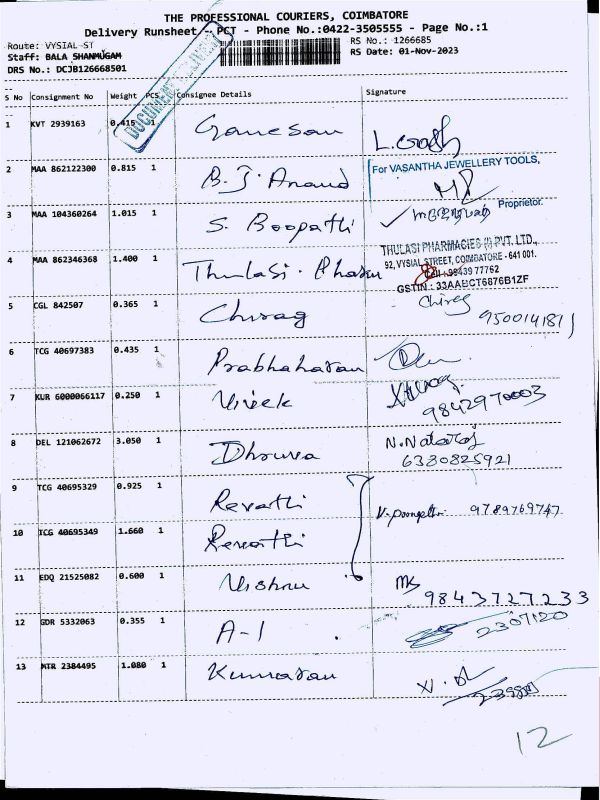 THE PROFESSIONAL COURIERS, COIMBATORE
Delivery Runsheet - PCT - Phone No.:0422-3505555 - Page No.:1
Route: VYSIAL-ST RS No.: 1266685
Staff: BALA SHANMUGAM RS Date: 01-Nov-2023
DRS No.: DCJB126668501
S No Consignment No Weight PCS Consignee Details Signature
1 KVT 2939163 0.415 1 Ganesan
2 MAA 862122300 0.815 1 B.J. Anand For VASANTHA JEWELLERY TOOLS,
Proprietor.
3 MAA 104360264 1.015 1 S. Boopathi
4 MAA 862346368 1.400 1 Thulasi. Pharm THULASI PHARMACIES (I) PVT. LTD.,
92, VYSIAL STREET, COIMBATORE - 641 001.
99439 77762
GSTIN : 33AABCT6876B1ZF
5 CGL 842507 0.365 1 Chirag Chirag
9500141811
6 TCG 40697383 0.435 1 Prabhaharan
7 KUR 6000066117 0.250 1 Vivek
9842970003
8 DEL 121062672 3.050 1 Dhourea N.Nataraj
6380825921
9 TCG 40695329 0.925 1 Revathi
9789769747
10 TCG 40695349 1.660 1 Revathi
11 EDQ 21525082 0.600 1 Vishnu
9843727233
12 GDR 5332063 0.355 1 A-1 2307120
13 MTR 2384495 1.080 1 Kumaran
12